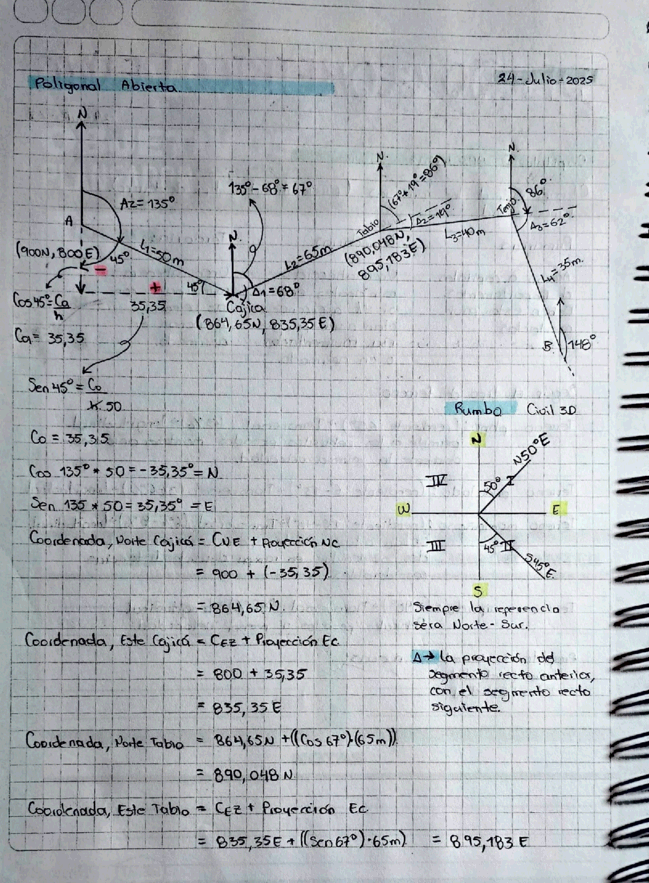 24-Julio-2025
Poligonal Abierta.
N
Az=135°
A
(900N, 800E)
45°
L1=50m
-
+
45°
35,35
Cos45°=Ca
h
Ca= 35,35
135°-68°=67°
N
Δ1=68°
Cajica
(864,65N, 835,35E)
L2=65m
N.
(67°+19°=86°)
Tabio
Δ2=19°
(890,048N,
895,183E)
L3=40m
N.
86°
Tenjo
Δ3=62°
L4=35m.
B.
148°
Sen 45° = Co
h.50
Co = 35,35
Cos 135° * 50 = -35,35° = N
Sen 135 * 50 = 35,35° = E
Coordenada, Norte Cajicá = CNE + Proyección NC
= 900 + (-35,35)
= 864,65 N.
Coordenada, Este Cajicá = CEZ + Proyección EC
= 800 + 35,35
= 835,35 E
Coordenada, Norte Tabio = 864,65N + ((Cos 67°)·(65m))
= 890,048 N
Coordenada, Este Tabio = CEZ + Proyección EC
= 835,35E + ((Sen67°)·65m) = 895,183 E
Rumbo Civil 3D
N
N50°E
IV
50°
I
W
E
III
45°
II
S45°E.
S
Siempre la referencia
sera Norte-Sur.
Δ→ la proyección del
segmento recto anterior,
con el segmento recto
siguiente.